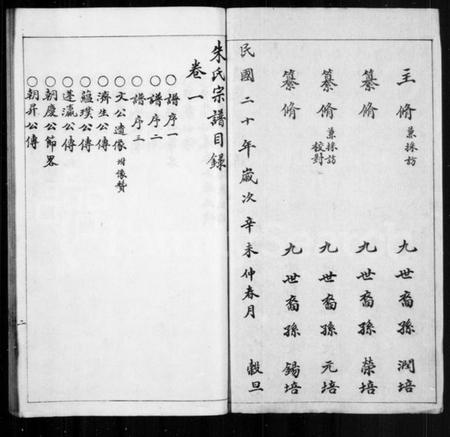 主脩 兼採訪 九世裔孫 潤培
纂脩 九世裔孫 榮培
纂脩 兼採訪校對 九世裔孫 元培
纂脩 九世裔孫 錫培
民國二十年歲次辛未仲春月 穀旦
朱氏宗譜目錄
卷一
○譜序一
○譜序二
○譜序三
○文公遺像 附像贊
○濟生公傳
○蘊璞公傳
○蓬瀛公傳
○朝慶公節畧
○朝昇公傳
二